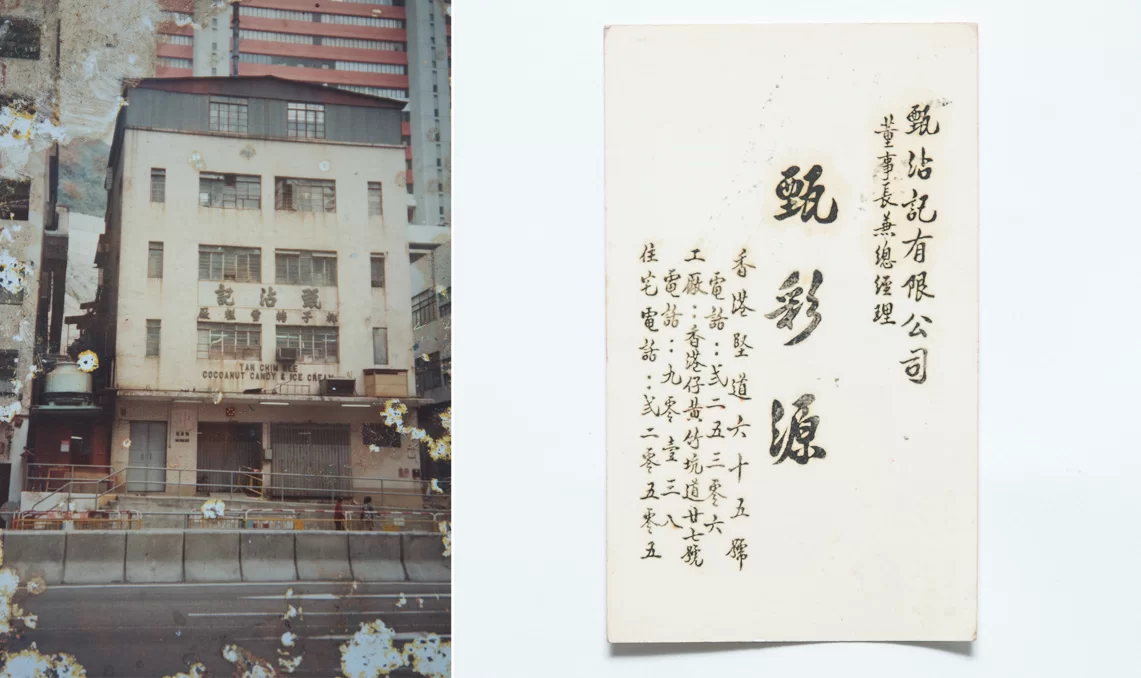 甄沾記
椰子糖雪糕廠
YAN CHIM KEE
COCOANUT CANDY & ICE CREAM
甄沾記有限公司
董事長兼總經理
甄彩源
香港堅道六十五號
電話：弍二五三零六
工廠：香港仔黄竹坑道廿七號
電話：九零壹三八
住宅電話：弍二零五零五